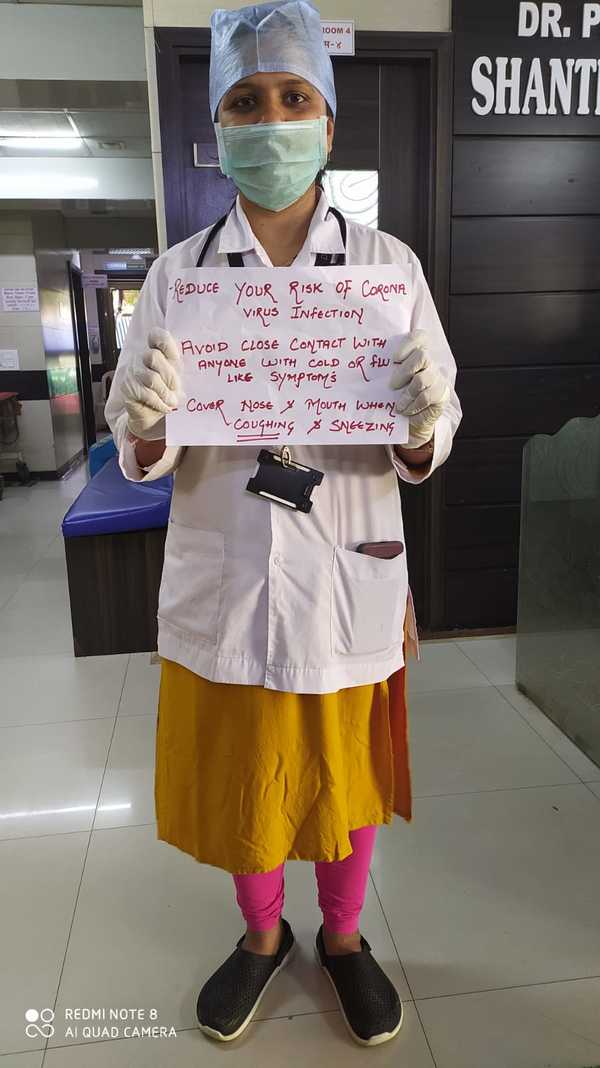 ROOM 4
DR. P
SHANT
- REDUCE YOUR RISK OF CORONA
VIRUS INFECTION
- AVOID CLOSE CONTACT WITH
ANYONE WITH COLD OR FLU -
LIKE SYMPTOM'S
- COVER NOSE & MOUTH WHEN
COUGHING & SNEEZING
REDMI NOTE 8
AI QUAD CAMERA